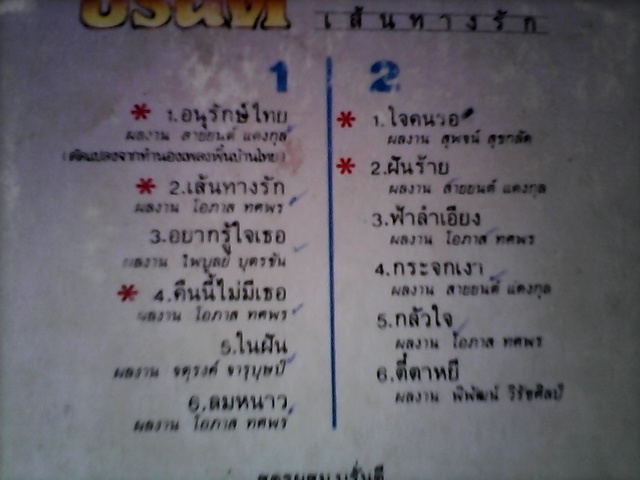 เส้นทางรัก
1
* 1.อนุรักษ์ไทย
ผลงาน สายยนต์ แดงกูล
(ดัดแปลงจากทำนองเพลงพื้นบ้านไทย)
* 2.เส้นทางรัก
ผลงาน โอภาส ทศพร
3.อยากรู้ใจเธอ
ผลงาน ไพบูลย์ บุตรขัน
* 4.คืนนี้ไม่มีเธอ
ผลงาน โอภาส ทศพร
5.ในฝัน
ผลงาน จตุรงค์ จารุบุษป์
6.ลมหนาว
ผลงาน โอภาส ทศพร
2
* 1.ใจคนรอ
ผลงาน สุพจน์ สุขกลัด
* 2.ฝันร้าย
ผลงาน สายยนต์ แดงกูล
3.ฟ้าลำเอียง
ผลงาน โอภาส ทศพร
4.กระจกเงา
ผลงาน สายยนต์ แดงกูล
5.กลัวใจ
ผลงาน โอภาส ทศพร
6.ตี๋ตาหยี
ผลงาน พิพัฒน์ วิรัชศิลป์